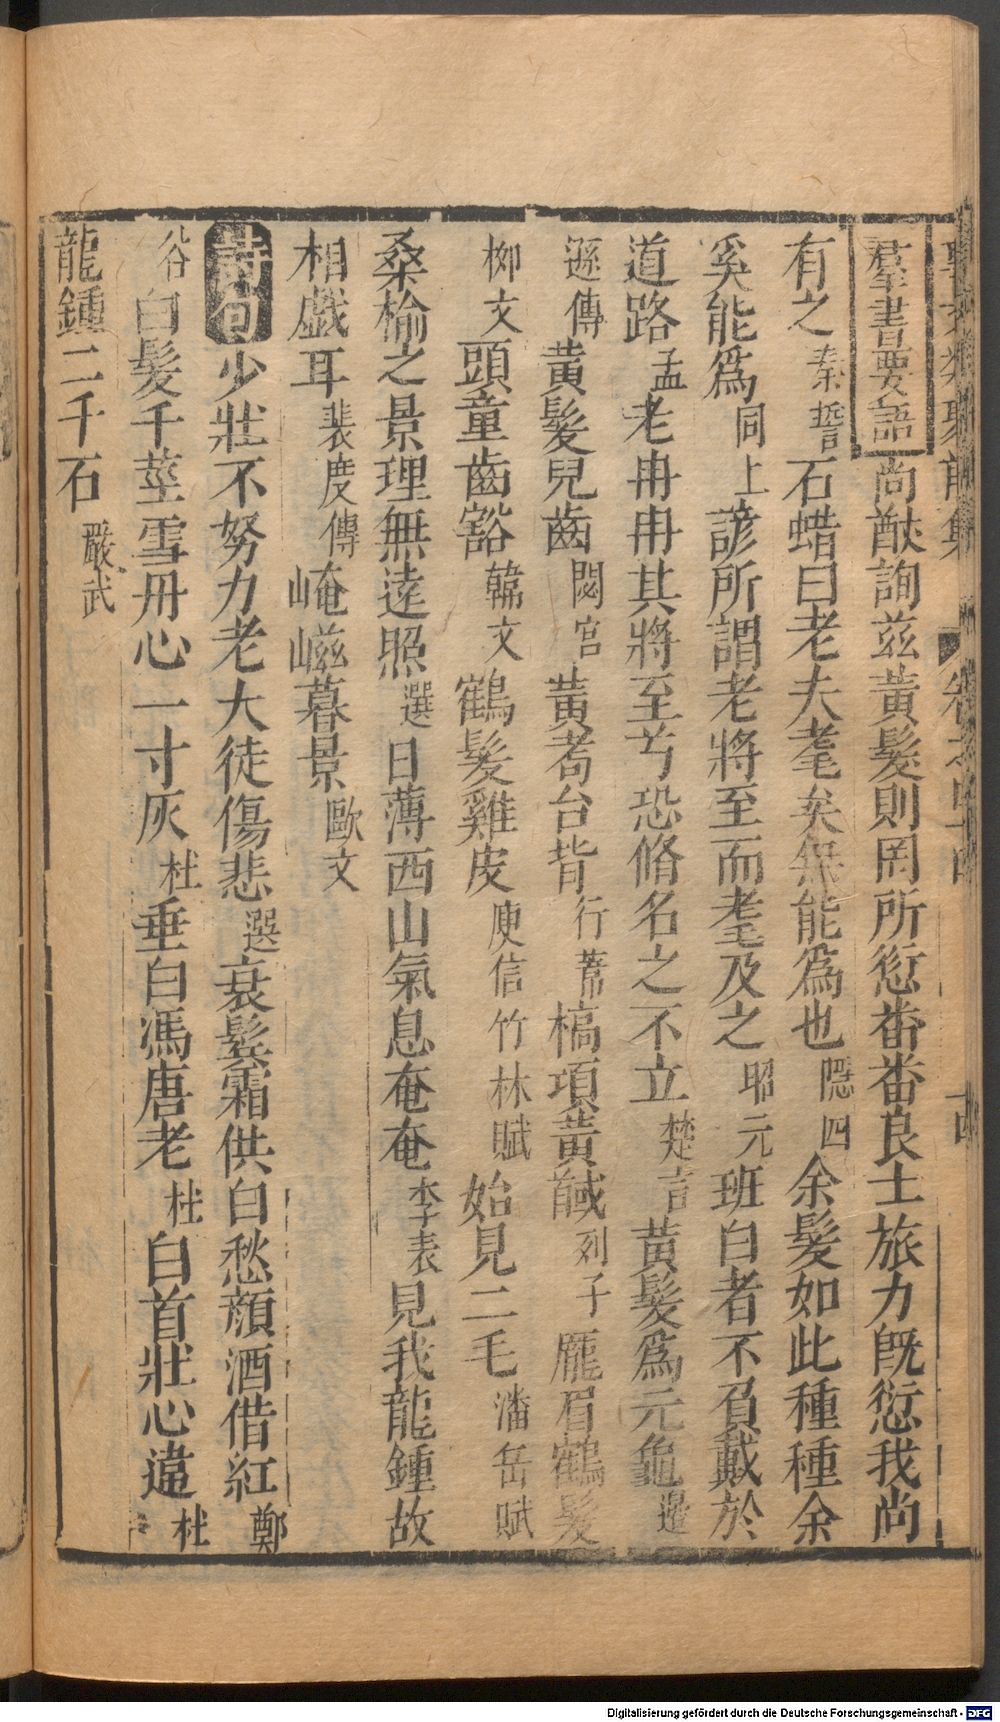 事文類聚前集 卷之四十四 十四
羣書要語尚猷詢茲黃髮則罔所愆番番良士旅力旣愆我尚
有之秦誓石蜡曰老夫耄矣無能爲也隱四余髮如此種種余
奚能爲同上諺所謂老將至而耄及之昭元班白者不負戴於
道路孟老冉冉其將至兮恐脩名之不立楚言黃髮爲元龜邊
遜傳黃髮兒齒閟宮黃耈台背行葦槁項黃馘列子厖眉鶴髮
柳文頭童齒豁韓文鶴髮雞皮庾信竹林賦始見二毛潘岳賦
桑榆之景理無遠照選日薄西山氣息奄奄李表見我龍鍾故
相戯耳裴度傳崦嵫暮景歐文
詩句少壯不努力老大徒傷悲選衰鬂霜供白愁顔酒借紅鄭
谷白髮千莖雪丹心一寸灰杜垂白馮唐老杜白首壯心違杜
龍鍾二千石嚴武
Digitalisierung gefördert durch die Deutsche Forschungsgemeinschaft - DFG